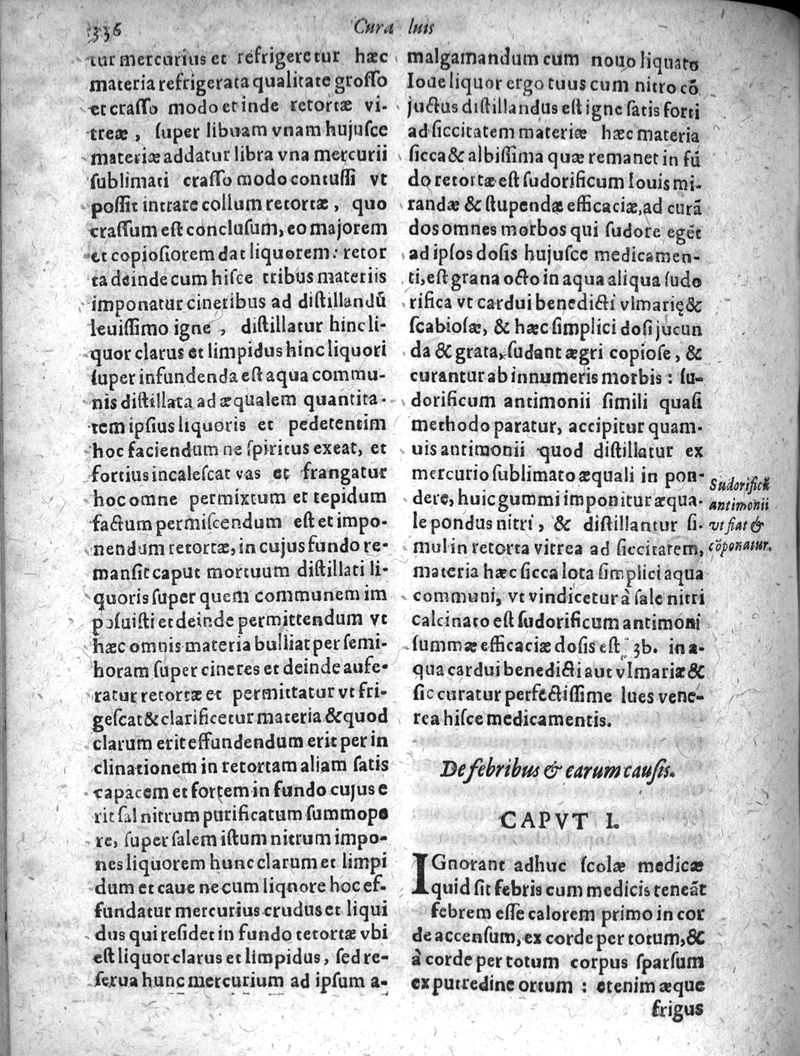 336
Cura luis
tur mercurius et refrigeretur hæc
materia refrigerata qualitate grosso
et crasso modo et inde retortæ vi-
treæ, super libuam vnam hujusce
materiæ addatur libra vna mercurii
sublimati crasso modo contussi vt
possit intrare collum retortæ, quo
crassum est conclusum, eo majorem
et copiosiorem dat liquorem: retor
ta deinde cum hisce tribus materiis
imponatur cineribus ad distillandũ
leuissimo igne, distillatur hinc li-
quor clarus et limpidus hinc liquori
super infundenda est aqua commu-
nis distillata ad æqualem quantita-
tem ipsius liquoris et pedetentim
hoc faciendum ne spiritus exeat, et
fortius incalescat vas et frangatur
hoc omne permixtum et tepidum
factum permiscendum est et impo-
nendum retortæ, in cujus fundo re-
mansit caput mortuum distillati li-
quoris super quem communem im
posuisti et deinde permittendum vt
hæc omnis materia bulliat per semi-
horam super cineres et deinde aufe-
ratur retortæ et permittatur vt fri-
gescat & clarificetur materia & quod
clarum erit effundendum erit per in
clinationem in retortam aliam satis
capacem et fortem in fundo cujus e
rit sal nitrum purificatum summope
re, super salem istum nitrum impo-
nes liquorem hunc clarum et limpi
dum et caue ne cum liqnore hoc ef-
fundatur mercurius crudus et liqui
dus qui residet in fundo retortæ vbi
est liquor clarus et limpidus, sed re-
serua hunc mercurium ad ipsum a-
malgamandum cum nouo liquato
Ioue liquor ergo tuus cum nitro cõ
juctus distillandus est igne satis forti
ad siccitatem materiæ hæc materia
sicca & albissima quæ remanet in fũ
do retortæ est sudorificum Iouis mi-
randæ & stupendæ efficaciæ, ad curã
dos omnes morbos qui sudore egẽt
ad ipsos dosis hujusce medicamen-
ti, est grana octo in aqua aliqua sudo
rifica vt cardui benedicti vlmarię &
scabiosæ, & hæc simplici dosi jucun
da & grata, sudant ægri copiose, &
curantur ab innumeris morbis: su-
dorificum antimonii simili quasi
methodo paratur, accipitur quam-
uis antimonii quod distillatur ex
mercurio sublimato æquali in pon-
dere, huic gummi imponitur æqua-
le pondus nitri, & distillantur si-
mul in retorta vitrea ad siccitatem,
materia hæc sicca lota simplici aqua
communi, vt vindicetur à sale nitri
calcinato est sudorificum antimoni
summæ efficaciæ dosis est ʒb. in a-
qua cardui benedicti aut vlmariæ &
sic curatur perfectissime lues vene-
rea hisce medicamentis.
Sudorificũ
antimonii
vt fiat &
cõponatur.
De febribus & earum causis.
CAPVT I.
IGnorant adhuc scolæ medicæ
quid sit febris cum medicis teneãt
febrem esse calorem primo in cor
de accensum, ex corde per totum, &
à corde per totum corpus sparsum
ex putredine ortum: etenim æque
frigus